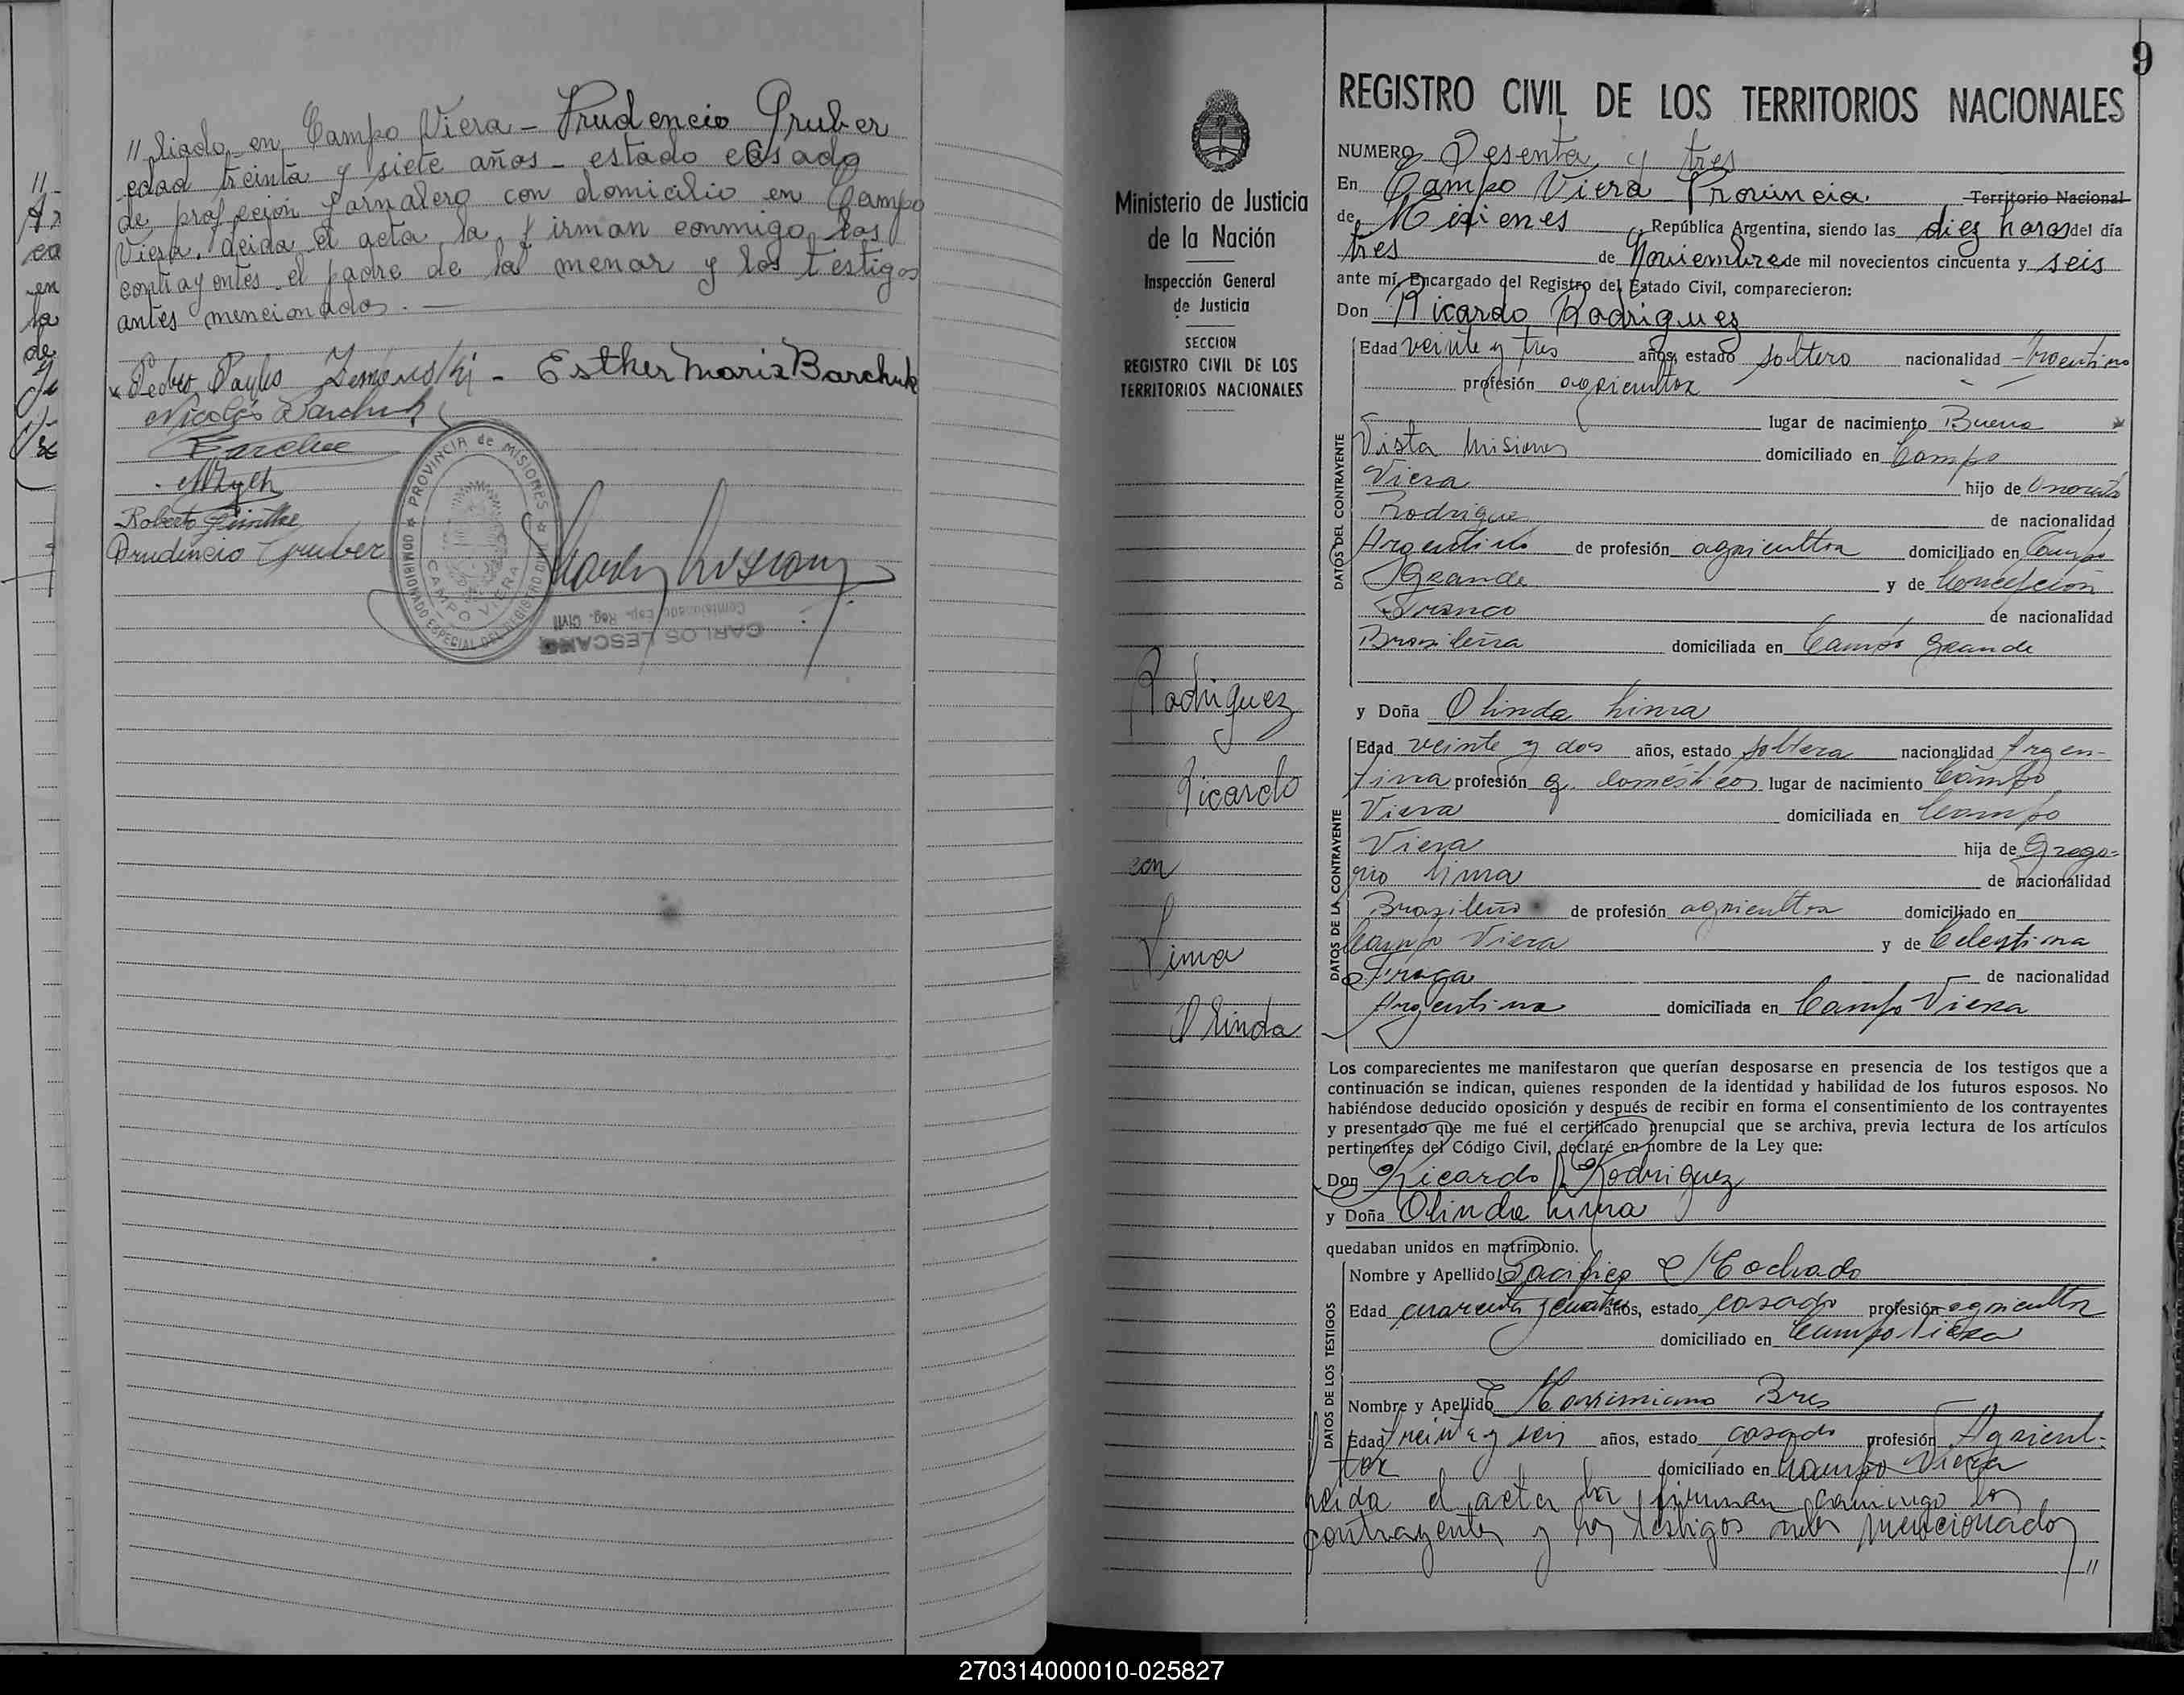 // liado en Campo Viera - Prudencio Gruber
edad treinta y siete años - estado casado
de profeción Jornalero con domicilio en Campo
Viera. Leida el acta la firman conmigo los
contrayentes el padre de la menor y los testigos
antes mencionados. —
Pedro Pablo - Esther Maria Barchuk
Nicolás Barchuk
Roberto
Prudencio Gruber
PROVINCIA de MISIONES
CAMPO VIERA
COMISIONADO ESPECIAL DEL REGISTRO CIVIL
CARLOS LESCANO
Comisionado Esp. Reg. Civil
9
Ministerio de Justicia
de la Nación
Inspección General
de Justicia
SECCION
REGISTRO CIVIL DE LOS
TERRITORIOS NACIONALES
Rodriguez
Ricardo
con
Lima
Olinda
REGISTRO CIVIL DE LOS TERRITORIOS NACIONALES
NUMERO Sesenta y tres
En Campo Viera Provincia Territorio Nacional
de Misiones República Argentina, siendo las diez horas del día
tres de Noviembre de mil novecientos cincuenta y seis
ante mí, Encargado del Registro del Estado Civil, comparecieron:
Don Ricardo Rodriguez
DATOS DEL CONTRAYENTE
Edad veinte y tres años, estado soltero nacionalidad Argentino
profesión agricultor
lugar de nacimiento Buena
Vista Misiones domiciliado en Campo
Viera hijo de
Rodrigue de nacionalidad
Argentino de profesión agricultor domiciliado en Campo
Grande y de Concepcion
Franco de nacionalidad
Brasileña domiciliada en Campo Grande
y Doña Olinda Lima
DATOS DE LA CONTRAYENTE
Edad veinte y dos años, estado soltera nacionalidad Argen-
tina profesión q. domésticos lugar de nacimiento Campo
Viera domiciliada en Campo
Viera hija de Grego-
rio Lima de nacionalidad
Brasileño de profesión agricultor domiciliado en
Campo Viera y de Celestina
Fraga de nacionalidad
Argentina domiciliada en Campo Viera
Los comparecientes me manifestaron que querían desposarse en presencia de los testigos que a
continuación se indican, quienes responden de la identidad y habilidad de los futuros esposos. No
habiéndose deducido oposición y después de recibir en forma el consentimiento de los contrayentes
y presentado que me fué el certificado prenupcial que se archiva, previa lectura de los artículos
pertinentes del Código Civil, declaré en nombre de la Ley que:
Don Ricardo Rodriguez
y Doña Olinda Lima
quedaban unidos en matrimonio.
DATOS DE LOS TESTIGOS
Nombre y Apellido Pacifico Machado
Edad cuarenta y cuatro años, estado casado profesión agricultor
domiciliado en Campo Viera
Nombre y Apellido Maximiano Bres
Edad treinta y seis años, estado casado profesión Agricul-
tor domiciliado en Campo Viera
Leida el acta la firman conmigo los
contrayentes y los testigos antes mencionados
//
270314000010-025827